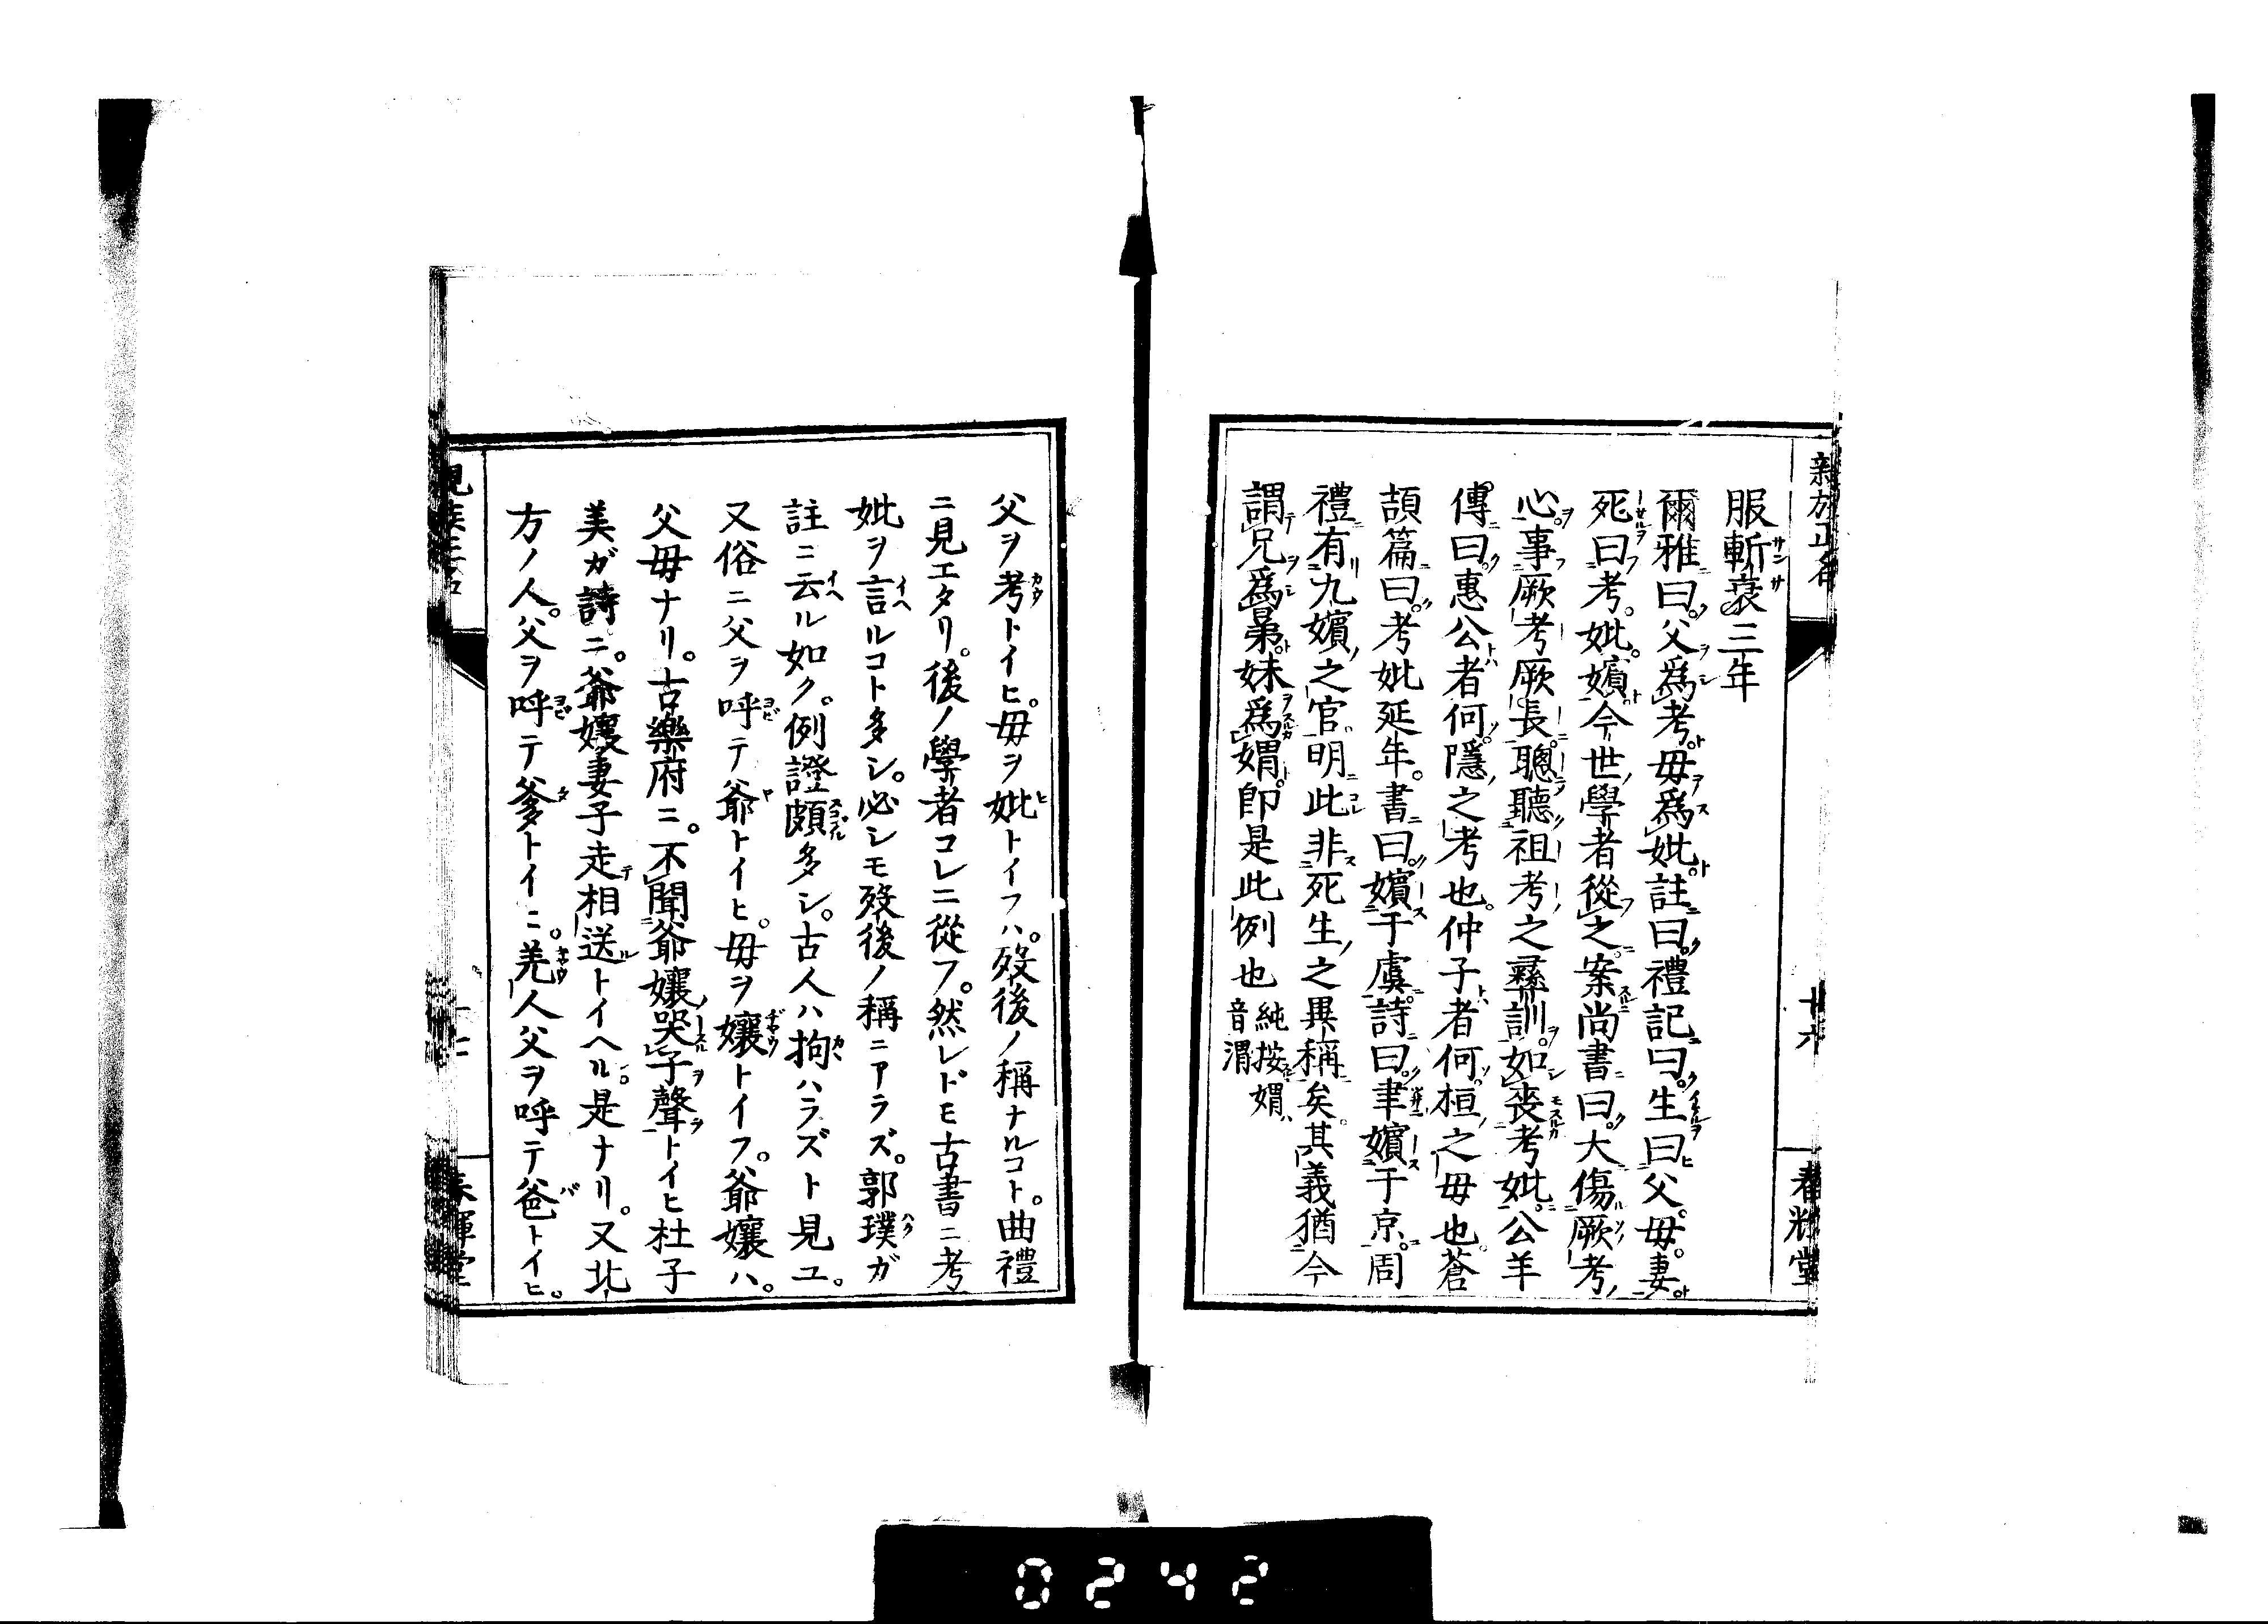 服斬衰三年
爾雅曰。父爲考。毋爲妣。註曰。禮記曰。生曰父。毋。妻。
死曰考。妣。嬪。今世學者從之。案尚書曰。大傷厥考
心。事厥考厥長。聰聽祖考之彝訓。如喪考妣。公羊
傳曰。惠公者何。隱之考也。仲子者何。桓之毋也。蒼
頡篇曰。考妣延年。書曰。嬪于虞。詩曰。聿嬪于京。周
禮有九嬪之官。明此非死生之異稱矣。其義猶今
謂兄爲晜。妹爲媦。卽是此例也純按媦音渭
廿六
父ヲ考トイヒ。毋ヲ妣トイフハ。歿後ノ稱ナルコト。曲禮
ニ見エタリ。後ノ學者コレニ從フ。然レドモ古書ニ考
妣ヲ言ルコト多シ。必シモ歿後ノ稱ニアラズ。郭璞ガ
註ニ云ル如ク。例證頗多シ。古人ハ拘ハラズト見ユ。
又俗ニ父ヲ呼テ爺トイヒ。毋ヲ孃トイフ。爺孃ハ。
父毋ナリ。古樂府ニ。不聞爺孃哭子聲トイヒ杜子
美ガ詩ニ。爺孃妻子走相送トイヘル是ナリ。又北
方ノ人。父ヲ呼テ爹トイヒ。羌人父ヲ呼テ爸トイヒ。
0242